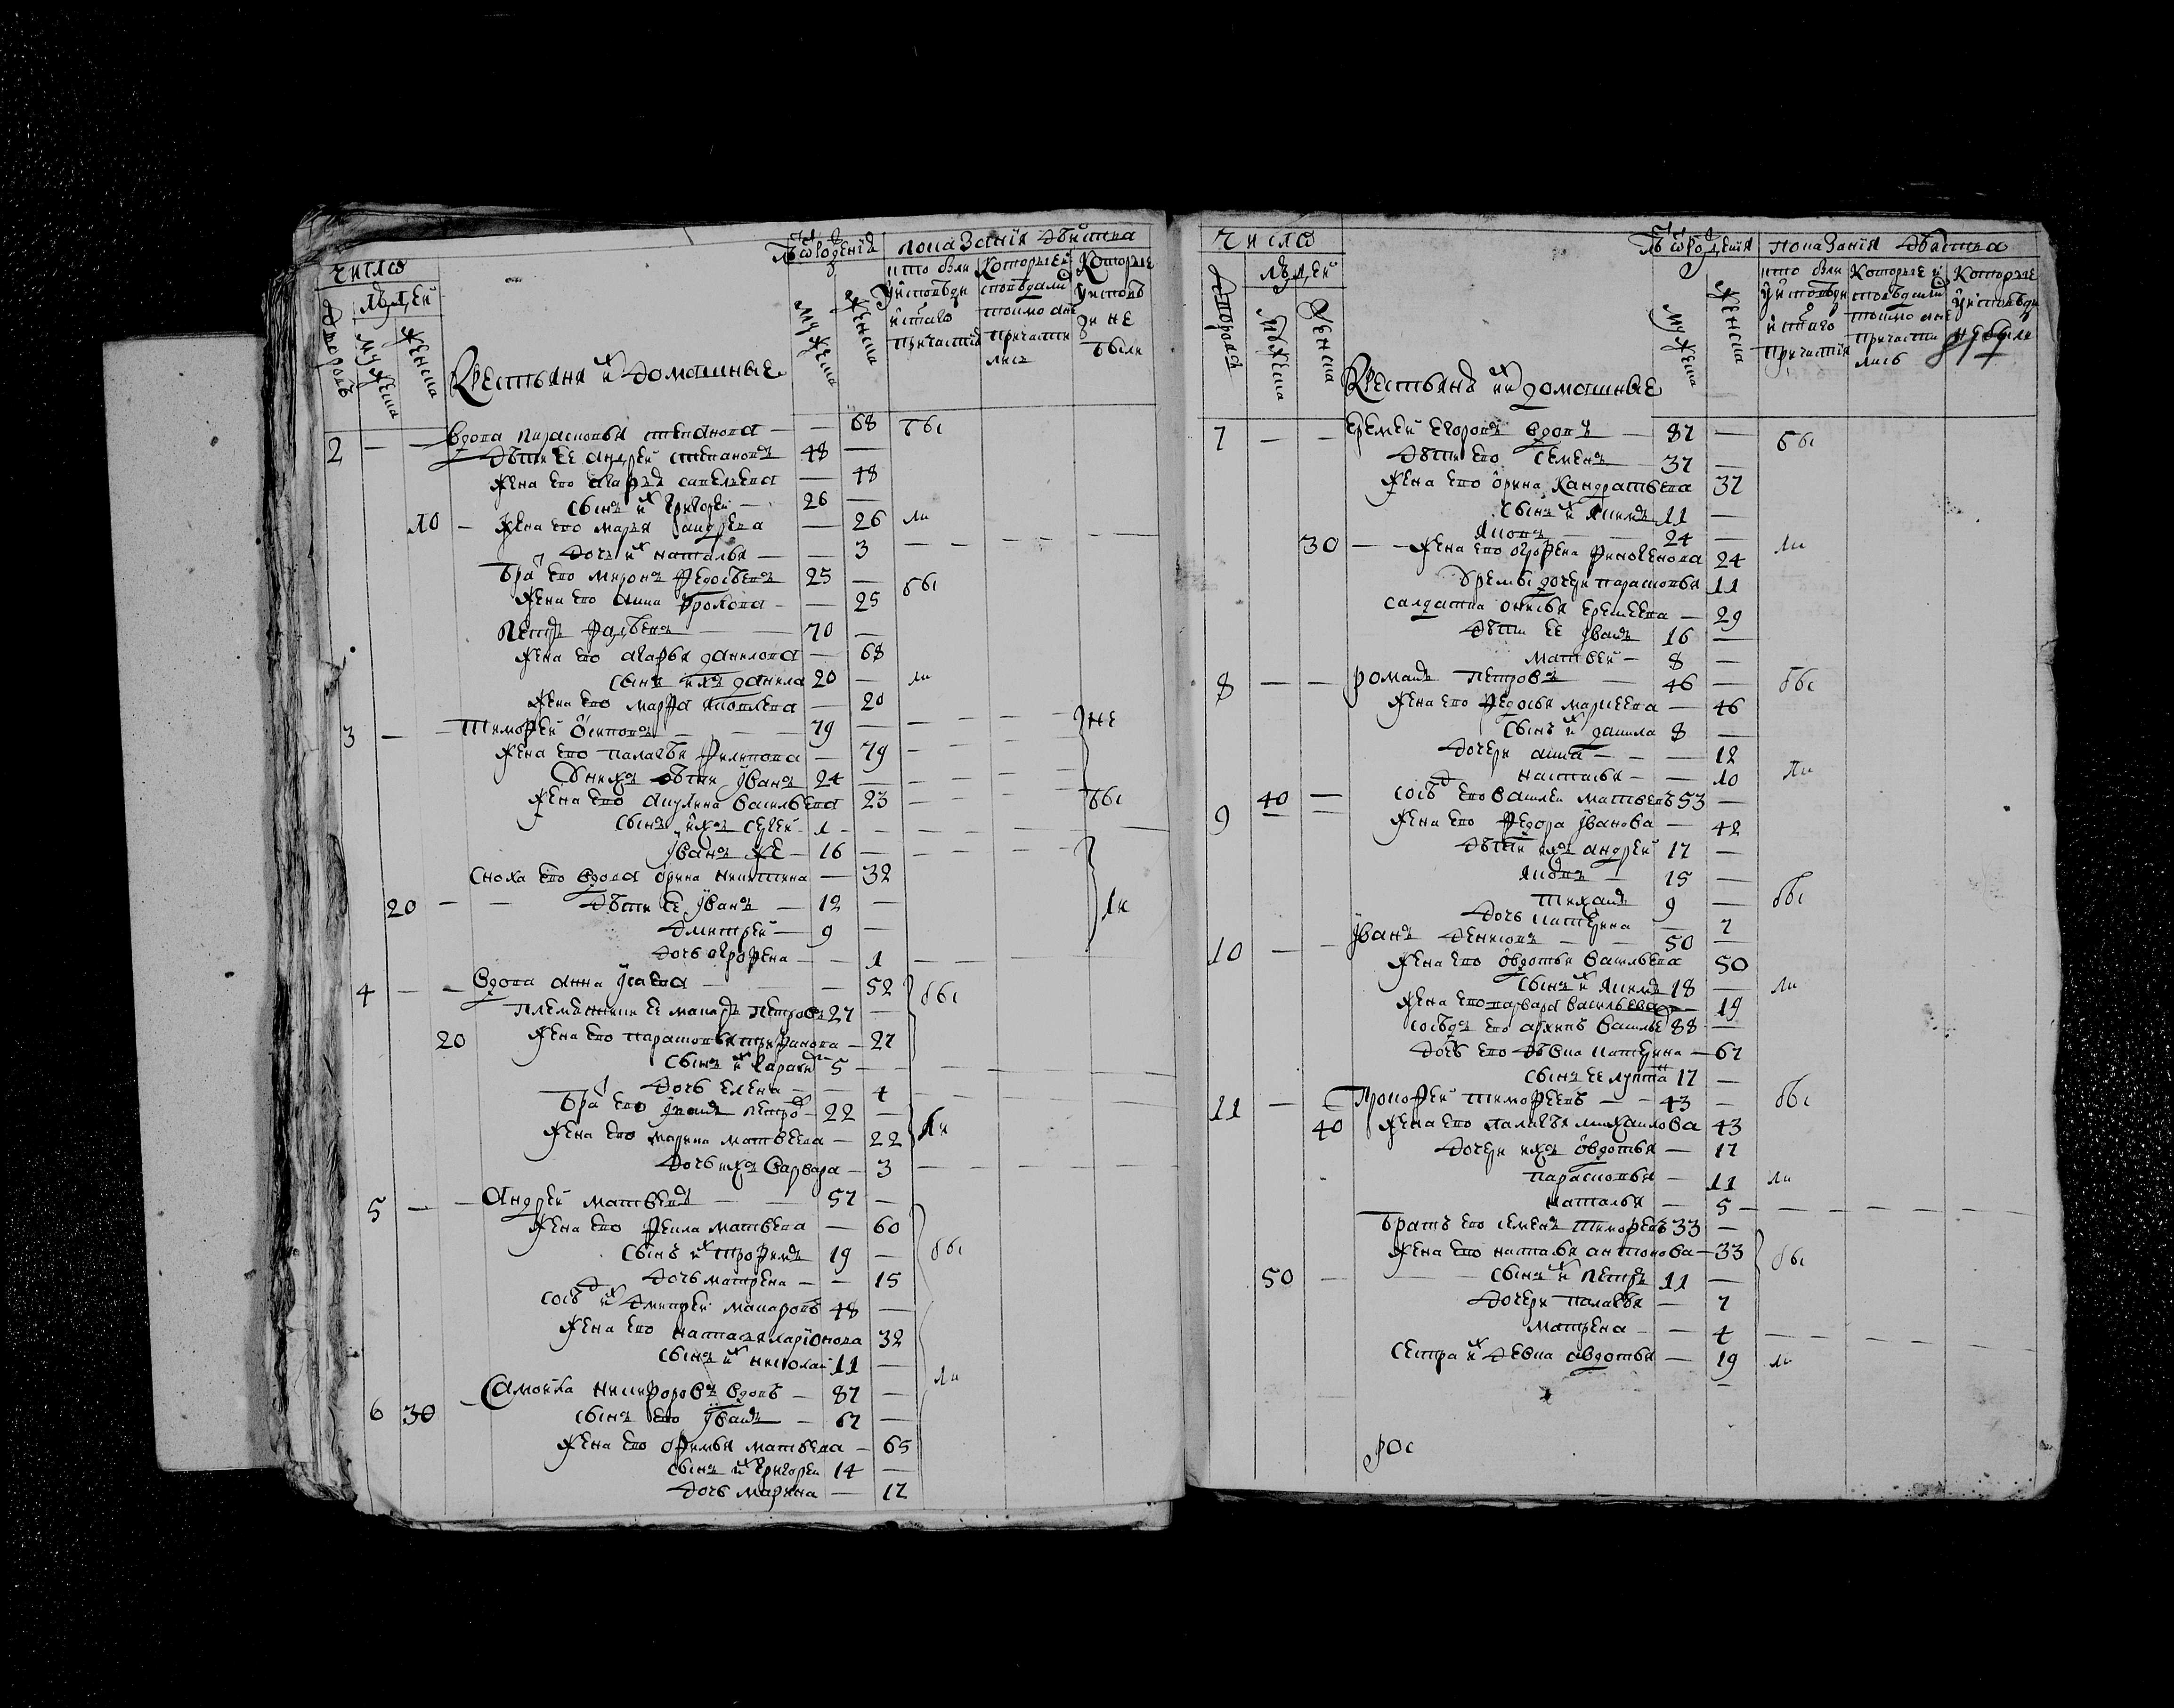 Число
людей
дворовъ
мужеска
женска
Крестьяня и домашные
лѣ ѿ рождения
мужеска
женска
показания действа
кто были у исповеди и с̃таго причастия
Которые исповедалис токмо а не причасти лись
Которые у исповеди не были
2 — — Вдова Парасковья степанова — — 68 бы
Дѣти ее андрей степановъ 48 —
Жена ево савельева — 48
Сынъ их Григорей — 26 —
10 — Жена ево марья андреева — 26 ли
Дочь их наталья — — 3
Бра ево миронъ Федосѣевъ 25 — бы
Жена ево анна Фролова — — 25
Петръ 70 —
Жена ево агафья данилова — 68
Сынъ ихъ данила 20 — ли
Жена ево марфа — 20
3 — — Тимофей Осиповъ 79 — не
Жена ево палагѣя Филипова — 79
дѣти Иванъ 24 —
Жена ево акулина васильева 23 бы
Сынъ ихъ Сергей 1 —
Иванъ же — 16 —
Сноха ево вдова орина никитина — 32
20 — — Дѣти ее Иванъ — 12 — ли
Дмитрей — 9 —
Дочь огрофена — — 1
4 — — Вдова анна Исаева — — 52 бы
Племянник ее макаръ Петровъ 27 —
20 Жена ево парасковья — 27
Сынъ их 5 —
Дочь Елена — — 4
Бра ево Петро 22 — ли
Жена ево марина матвеева — 22
Дочь ихъ Варвара — 3
5 — — Андрей матвеевъ — 57 —
Жена ево Фекла матвеева — 60
Сынъ их трофимъ 19 — бы
Дочь матрена — — 15
Сосѣд их Дмитрей макаровъ 48 —
Жена ево наталья ларионова 32
Сынъ их николай 11 —
6 30 Самойла никифоровъ вдовъ — 87 — ли
Сынъ ево Иванъ — 67 —
Жена ево офимья матвеева — 65
Сынъ их Григорей 14 —
Дочь марина — 17
Число
людей
дворовъ
мужеска
женска
Крестьяня и их домашные
лѣ ѿ рождения
мужеска
женска
показания действа
кто были у исповеди и с̃таго причастия
Которые исповедали токмо а не причасти лись
Которые у исповеди не были
7 — — Еремей Егоровъ вдовъ — 87 — бы
Дѣти ево семенъ 37 —
Жена ево орина Кандратьева 37
Сынъ их Якимъ 11 —
Яковъ 24 —
30 — — Жена ево огрофена 24 ли
дочери парасковья 11
Салдатка Еремеева — 29
Дѣти ее Иванъ 16 —
матвей — 8 —
8 — — Романъ петровъ 46 — бы
Жена ево Федосья — 46
Сынъ их данила 8 —
Дочери анна — — 12
настасья — — 10 ли
40 — Сосѣд ево василей матвеевъ 53 —
9 — — Жена ево Федора Иванова — 42
Дѣти ихъ андрей 17 —
Яковъ — 15 —
9 — бы
Дочь катерина — 7
10 — — Иванъ Денисовъ — — 50 —
Жена ево овдотья васильева 50
Сынъ их Якимъ 18 — ли
Жена ево варвара васильева 19
Сосѣдъ ево архипъ василье 88 —
Дочь ево Дѣвка катерина — 67
Сынъ ее 17 —
11 — — Прокофей тимофеевъ — — 43 — бы
40 Жена ево палагѣя михаилова 43
Дочери ихъ овдотья — 17
парасковья — 11 ли
наталья — 5
Братъ ево семенъ тимофеевъ 33 —
Жена ево наталья антонова — 33 бы
50 — Сынъ их Петръ 11 —
Дочери палагѣя — 7
матрена — — 4
Сестра их Девка авдотья — 19 ли
рос